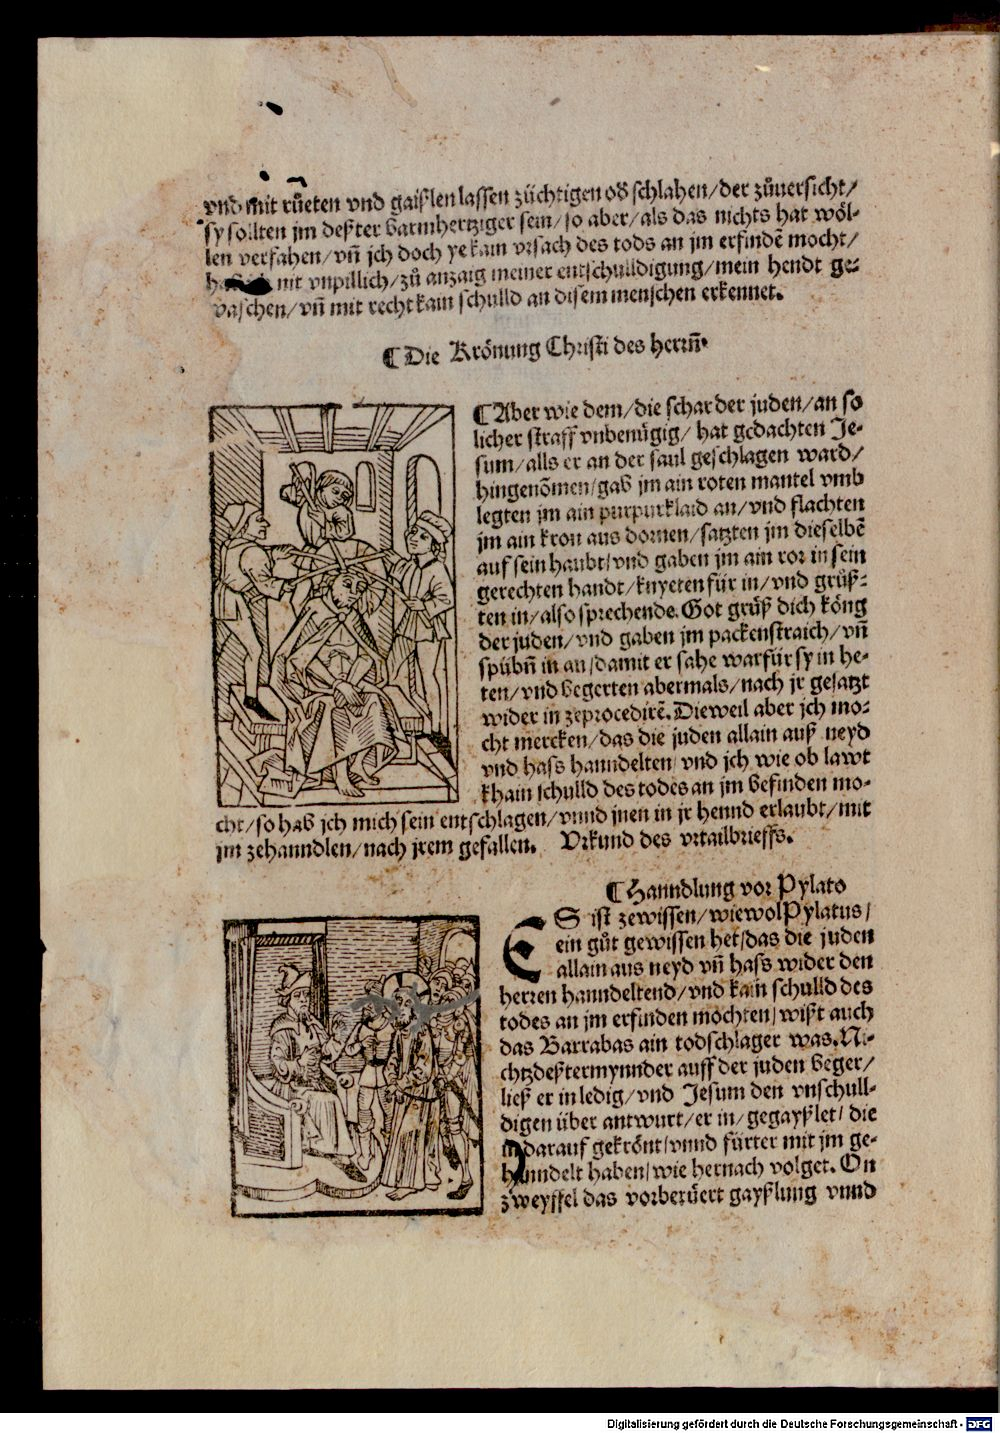 vnd mit růeten vnd gaißlen lassen züchtigen oď schlahen/der zůuersicht/
sy sollten jm deßter barmhertziger sein/so aber/als das nichts hat wöl-
len verfahen/vn̄ jch doch ye kain vrsach des tods an jm erfindē mocht/
nit vnpillich/zů anzaig meiner entschulldigung/mein hendt ge-
waschen/vn̄ mit recht kain schulld an disem menschen erkennet.
¶Die Krönung Christi des herrn̄.
¶Aber wie dem/die schar der juden/an so
licher straff vnbenügig/hat gedachten Je-
sum/alls er an der saul geschlagen ward/
hingenōmen/gab jm ain roten mantel vmb
legten jm ain purpurklaid an/vnd flachten
jm ain kron aus dornen/satzten jm dieselbē
auf sein haubt/vnd gaben jm ain ror in sein
gerechten handt/knyeten für in/vnd grüß-
ten in/also sprechende. Got grüß dich köng
der juden/vnd gaben jm packenstraich/vn̄
spübn̄ in an/damit er sahe warfür sy in he-
ten/vnd begerten abermals/nach jr gesatzt
wider in zeprocedirē. Dieweil aber jch mo-
cht mercken/das die juden allain auß neyd
vnd hass hanndelten/vnd jch wie ob lawt
khain schulld des todes an jm befinden mo-
cht/so hab jch mich sein entschlagen/vnnd jnen in jr hennd erlaubt/mit
jm zehanndlen/nach jrem gefallen. Vrkund des vrtailbrieffs.
¶Hanndlung vor Pylato
ES ist zewissen/wiewol Pylatus/
ein gůt gewissen het/das die juden
allain aus neyd vn̄ hass wider den
herren hanndeltend/vnd kain schulld des
todes an jm erfinden möchten/wißt auch
das Barrabas ain todschlager was. Ni-
chtzdeßtermynnder auff der juden beger/
ließ er in ledig/vnd Jesum den vnschull-
digen über antwurt/er in/gegayßlet/die
in darauf gekrönt/vnnd fürter mit jm ge-
hanndelt haben/wie hernach volget. On
zweyffel das vorberüert gayßlung vnnd
Digitalisierung gefördert durch die Deutsche Forschungsgemeinschaft - DFG